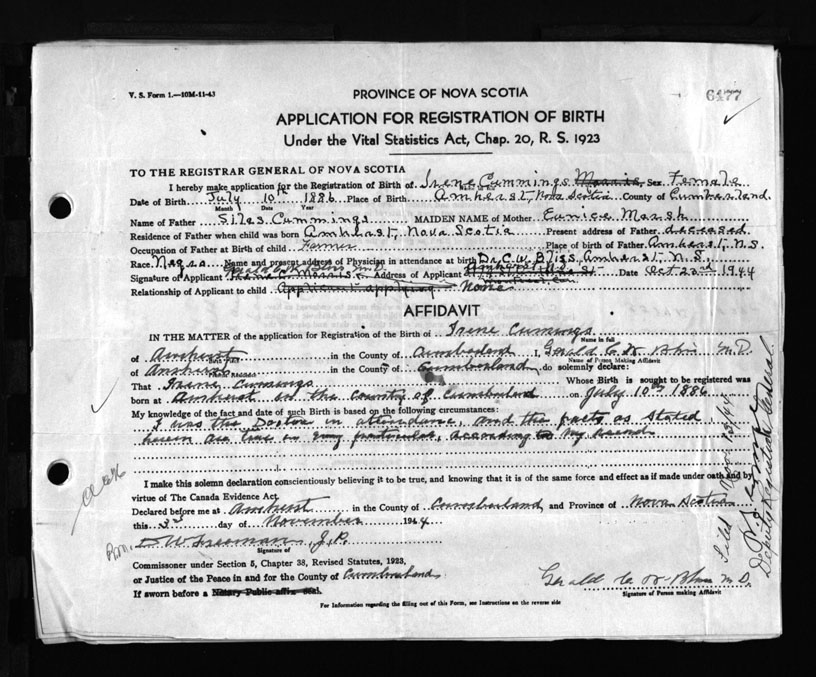 V. S. Form 1.—10M-11-43
PROVINCE OF NOVA SCOTIA
APPLICATION FOR REGISTRATION OF BIRTH
Under the Vital Statistics Act, Chap. 20, R. S. 1923
TO THE REGISTRAR GENERAL OF NOVA SCOTIA
I hereby make application for the Registration of Birth of Irene Cummings Morris Sex Female
Date of Birth July 10th 1886 Place of Birth Amherst, Nova Scotia County of Cumberland.
Month Date Year
Name of Father Siles Cummings MAIDEN NAME of Mother Eunice Marsh
Residence of Father when child was born Amherst, Nova Scotia Present address of Father deceased
Occupation of Father at Birth of child Farmer Place of birth of Father Amherst, N.S.
Race Negro Name and present address of Physician in attendance at birth Dr. C.W. Bliss, Amherst, N.S.
Signature of Applicant Address of Applicant Date Oct 23rd 1944
Relationship of Applicant to child Applicant applying None
AFFIDAVIT
IN THE MATTER of the application for Registration of the Birth of Irene Cummings
Name in full
of Amherst in the County of Cumberland I, Gerald C. W. Bliss M.D.
Name of Person Making Affidavit
of Amherst in the County of Cumberland, do solemnly declare:
That Irene Cummings Whose Birth is sought to be registered was
born at Amherst in the County of Cumberland on July 10th 1886
My knowledge of the fact and date of such Birth is based on the following circumstances:
I was the Doctor in attendance, and the facts as stated
herein are true in every particular, according to my record
I make this solemn declaration conscientiously believing it to be true, and knowing that it is of the same force and effect as if made under oath and by
virtue of The Canada Evidence Act.
Declared before me at Amherst in the County of Cumberland and Province of Nova Scotia
this 3rd day of November 1944
W Freeman, J.P.
Signature of
Commissioner under Section 5, Chapter 38, Revised Statutes, 1923,
or Justice of the Peace in and for the County of Cumberland
Gerald C. W. Bliss M.D.
Signature of Person making Affidavit
If sworn before a Notary Public affix seal.
For Information regarding the filling out of this Form, see Instructions on the reverse side
Deputy Registrar General